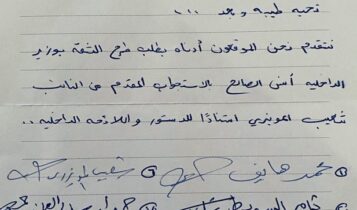 تحيه طيبه وبعد ،،،
نتقدم نحن الموقعون أدناه بطلب طرح الثقة بوزير
الداخليه أنس الصالح بالاستجواب المقدم من النائب
شعيب المويزري استنادًا للدستور واللائحه الداخليه ..
① محمد هايف ⑤ شعيب المويزري
ثامر السويط